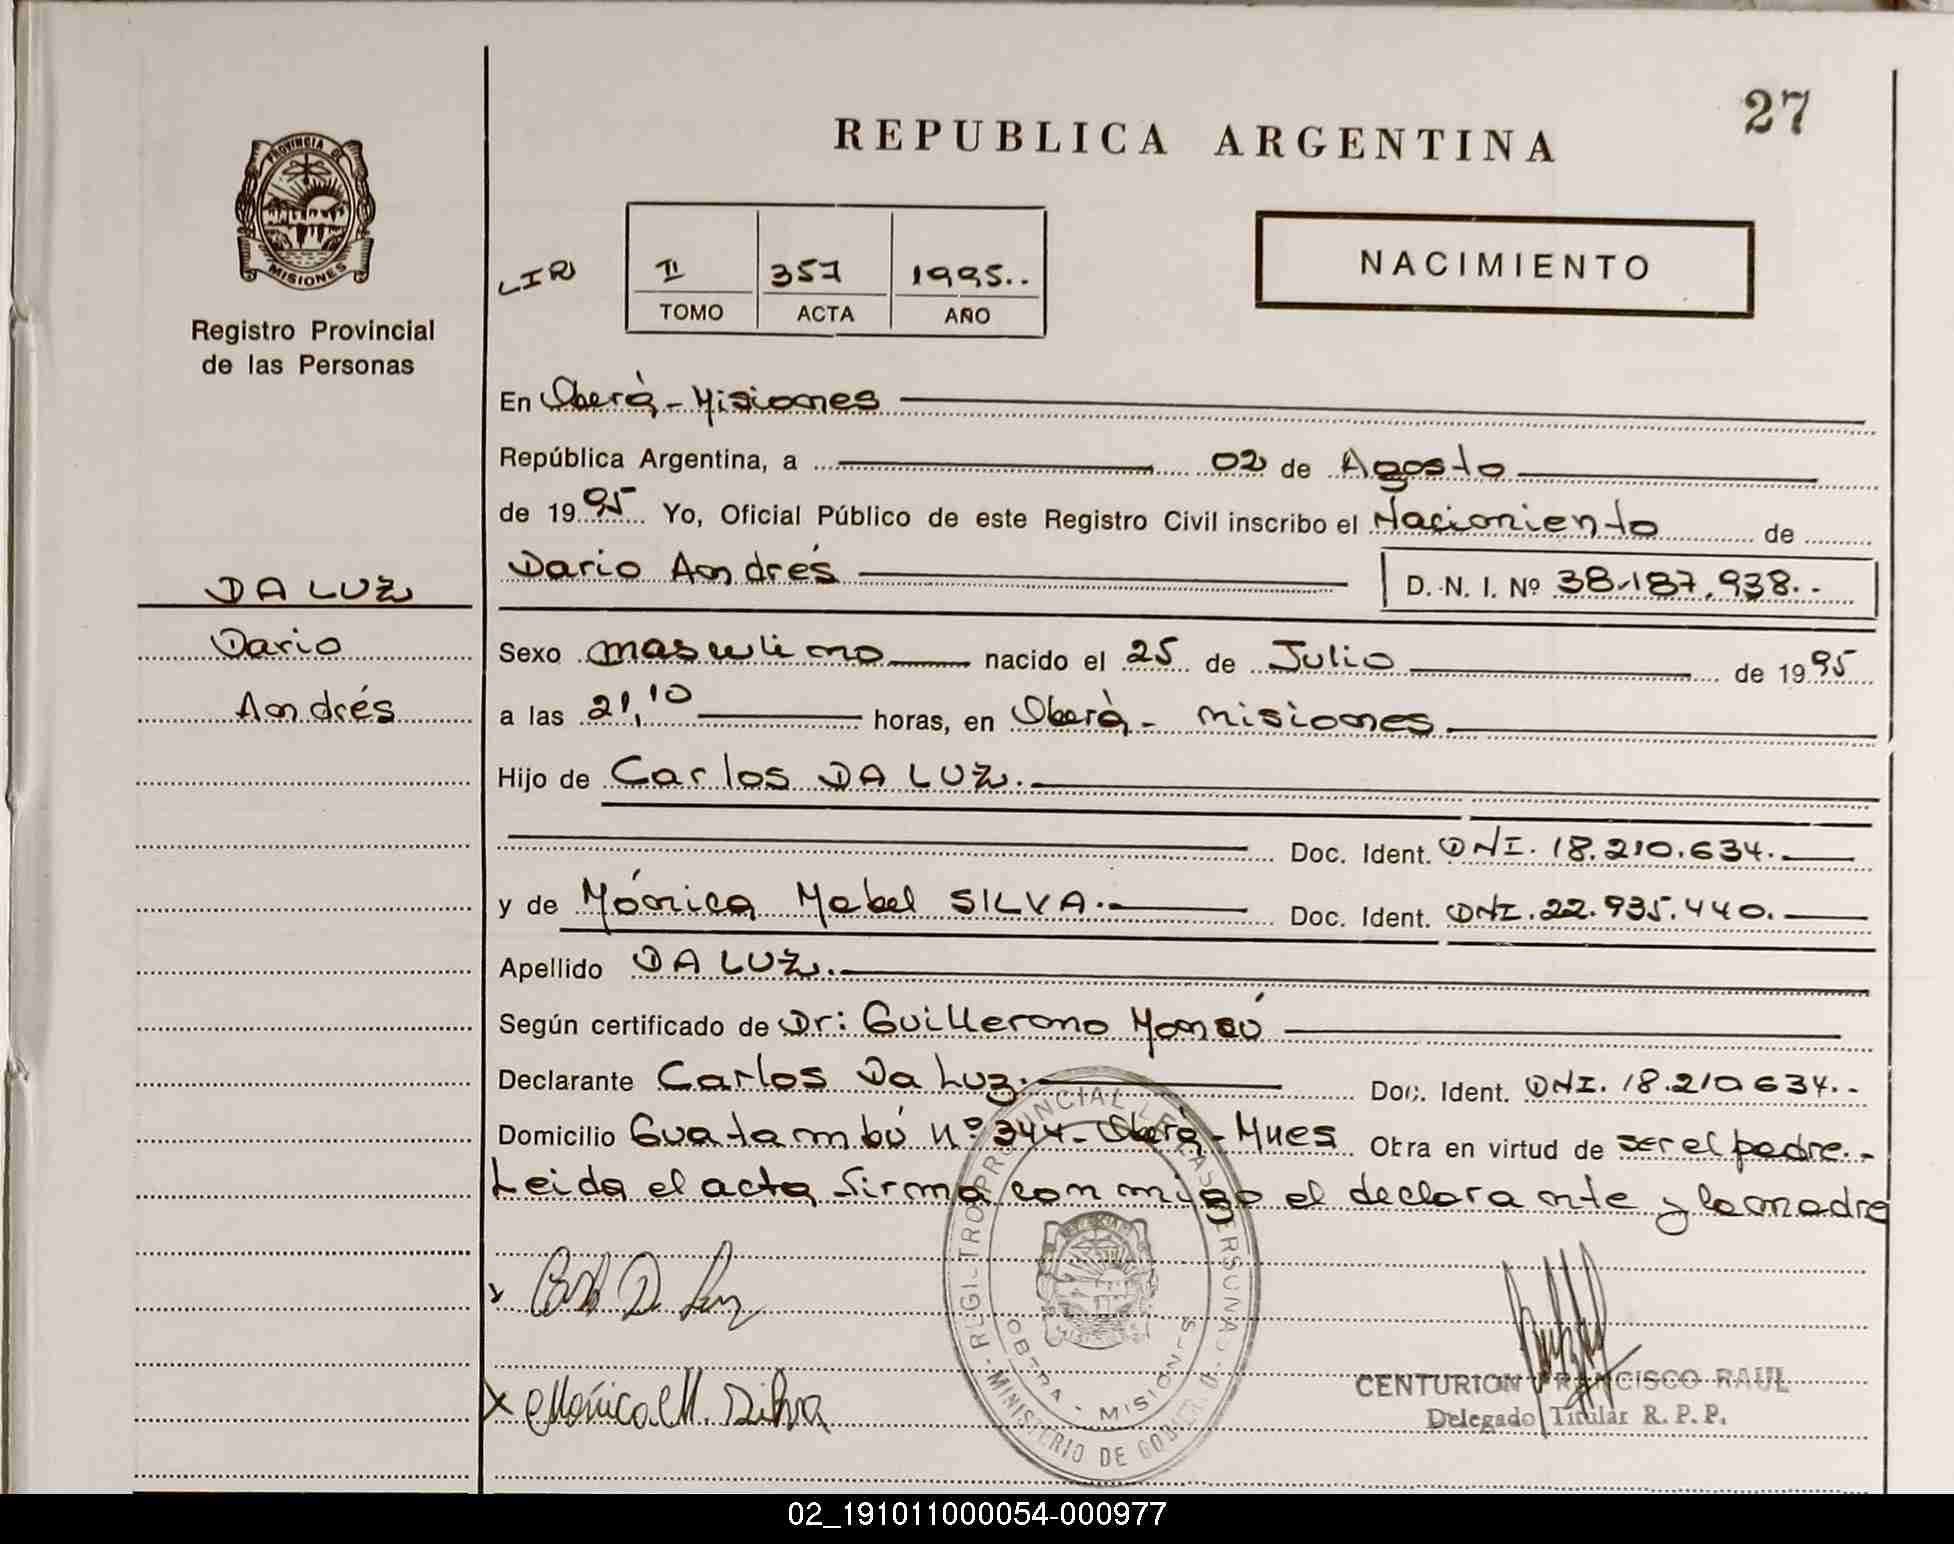 27
REPUBLICA ARGENTINA
PROVINCIA DE
MISIONES
Registro Provincial
de las Personas
II 357 1995..
TOMO ACTA AÑO
NACIMIENTO
En Oberà - Misiones
República Argentina, a 02 de Agosto
de 1995 Yo, Oficial Público de este Registro Civil inscribo el Nacimiento de
Dario Andrés D. N. I. Nº 38.187.938..
DA LUZ
Dario
Andrés
Sexo masculino nacido el 25 de Julio de 1995
a las 21,10 horas, en Oberà - misiones
Hijo de Carlos DA LUZ.
Doc. Ident. DNI. 18.210.634.
y de Mónica Mabel SILVA. Doc. Ident. DNI. 22.935.440.
Apellido DA LUZ.
Según certificado de Dr: Guillermo
Declarante Carlos Da Luz. Doc. Ident. DNI. 18.210634..
Domicilio Guatambú Nº 344 - Oberà - Mnes Obra en virtud de ser el padre..
Leida el acta firma conmigo el declarante y la madre
x Mónica M. Silva
REGISTRO PROVINCIAL DE LAS PERSONAS
MINISTERIO DE
OBERA - MISIONES
CENTURION FRANCISCO RAUL
Delegado Titular R. P. P.
02_191011000054-000977